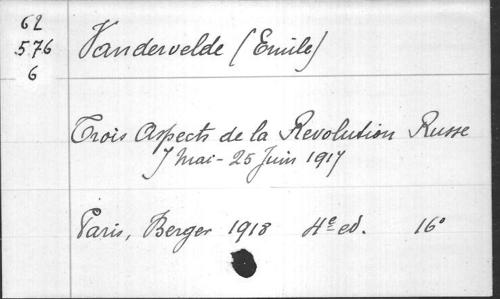 62
576
6
Vandervelde (Emile)
Trois Aspects de la Revolution Russe
7 Mai - 25 Juin 1917
Paris, Berger 1918 4e ed. 16°